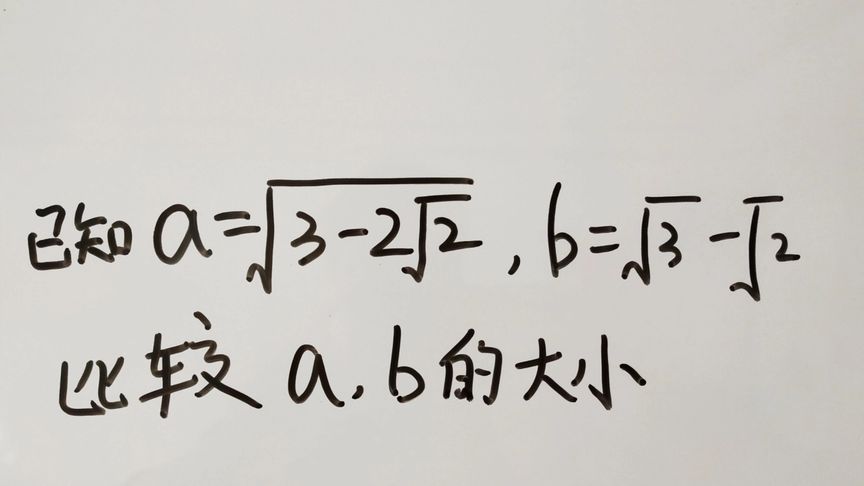 已知 a=√(3-2√2) , b=√3-√2
比较 a,b的大小